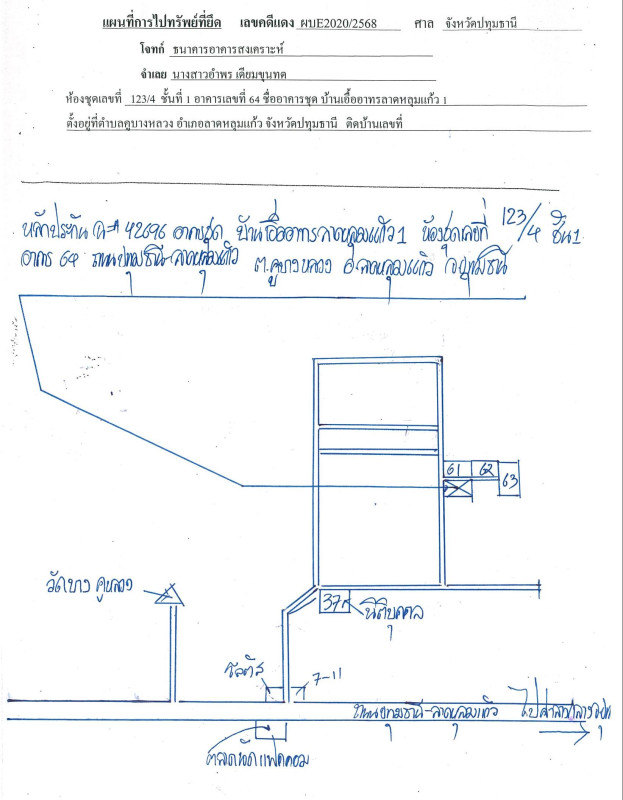 แผนที่การไปทรัพย์ที่ยึด เลขคดีแดง ผบE2020/2568 ศาล จังหวัดปทุมธานี
โจทก์ ธนาคารอาคารสงเคราะห์
จำเลย นางสาวอำพร เดียมขุนทด
ห้องชุดเลขที่ 123/4 ชั้นที่ 1 อาคารเลขที่ 64 ชื่ออาคารชุด บ้านเอื้ออาทรลาดหลุมแก้ว 1
ตั้งอยู่ที่ตำบลคูบางหลวง อำเภอลาดหลุมแก้ว จังหวัดปทุมธานี ติดบ้านเลขที่
หลักประกัน 42696 อาคารชุด บ้านเอื้ออาทรลาดหลุมแก้ว 1 ห้องชุดเลขที่ 123/4 ชั้น 1
อาคาร 64 ถนนปทุมธานี-ลาดหลุมแก้ว ต.คูบางหลวง อ.ลาดหลุมแก้ว จ.ปทุมธานี
61 62
63
วัดบาง คูหลวง
37
นิติบุคคล
โลตัส
7-11
ถนนปทุมธานี-ลาดหลุมแก้ว ไปศาลากลาง
ตลาดนัดแฟลตคอม